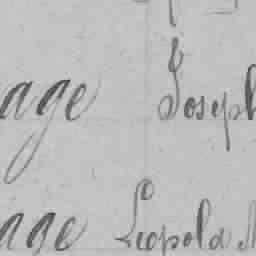 age Joseph
age Leopold